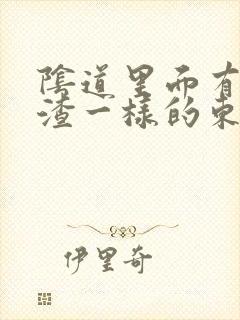 陰道里面有
渣一樣的東
伊里奇